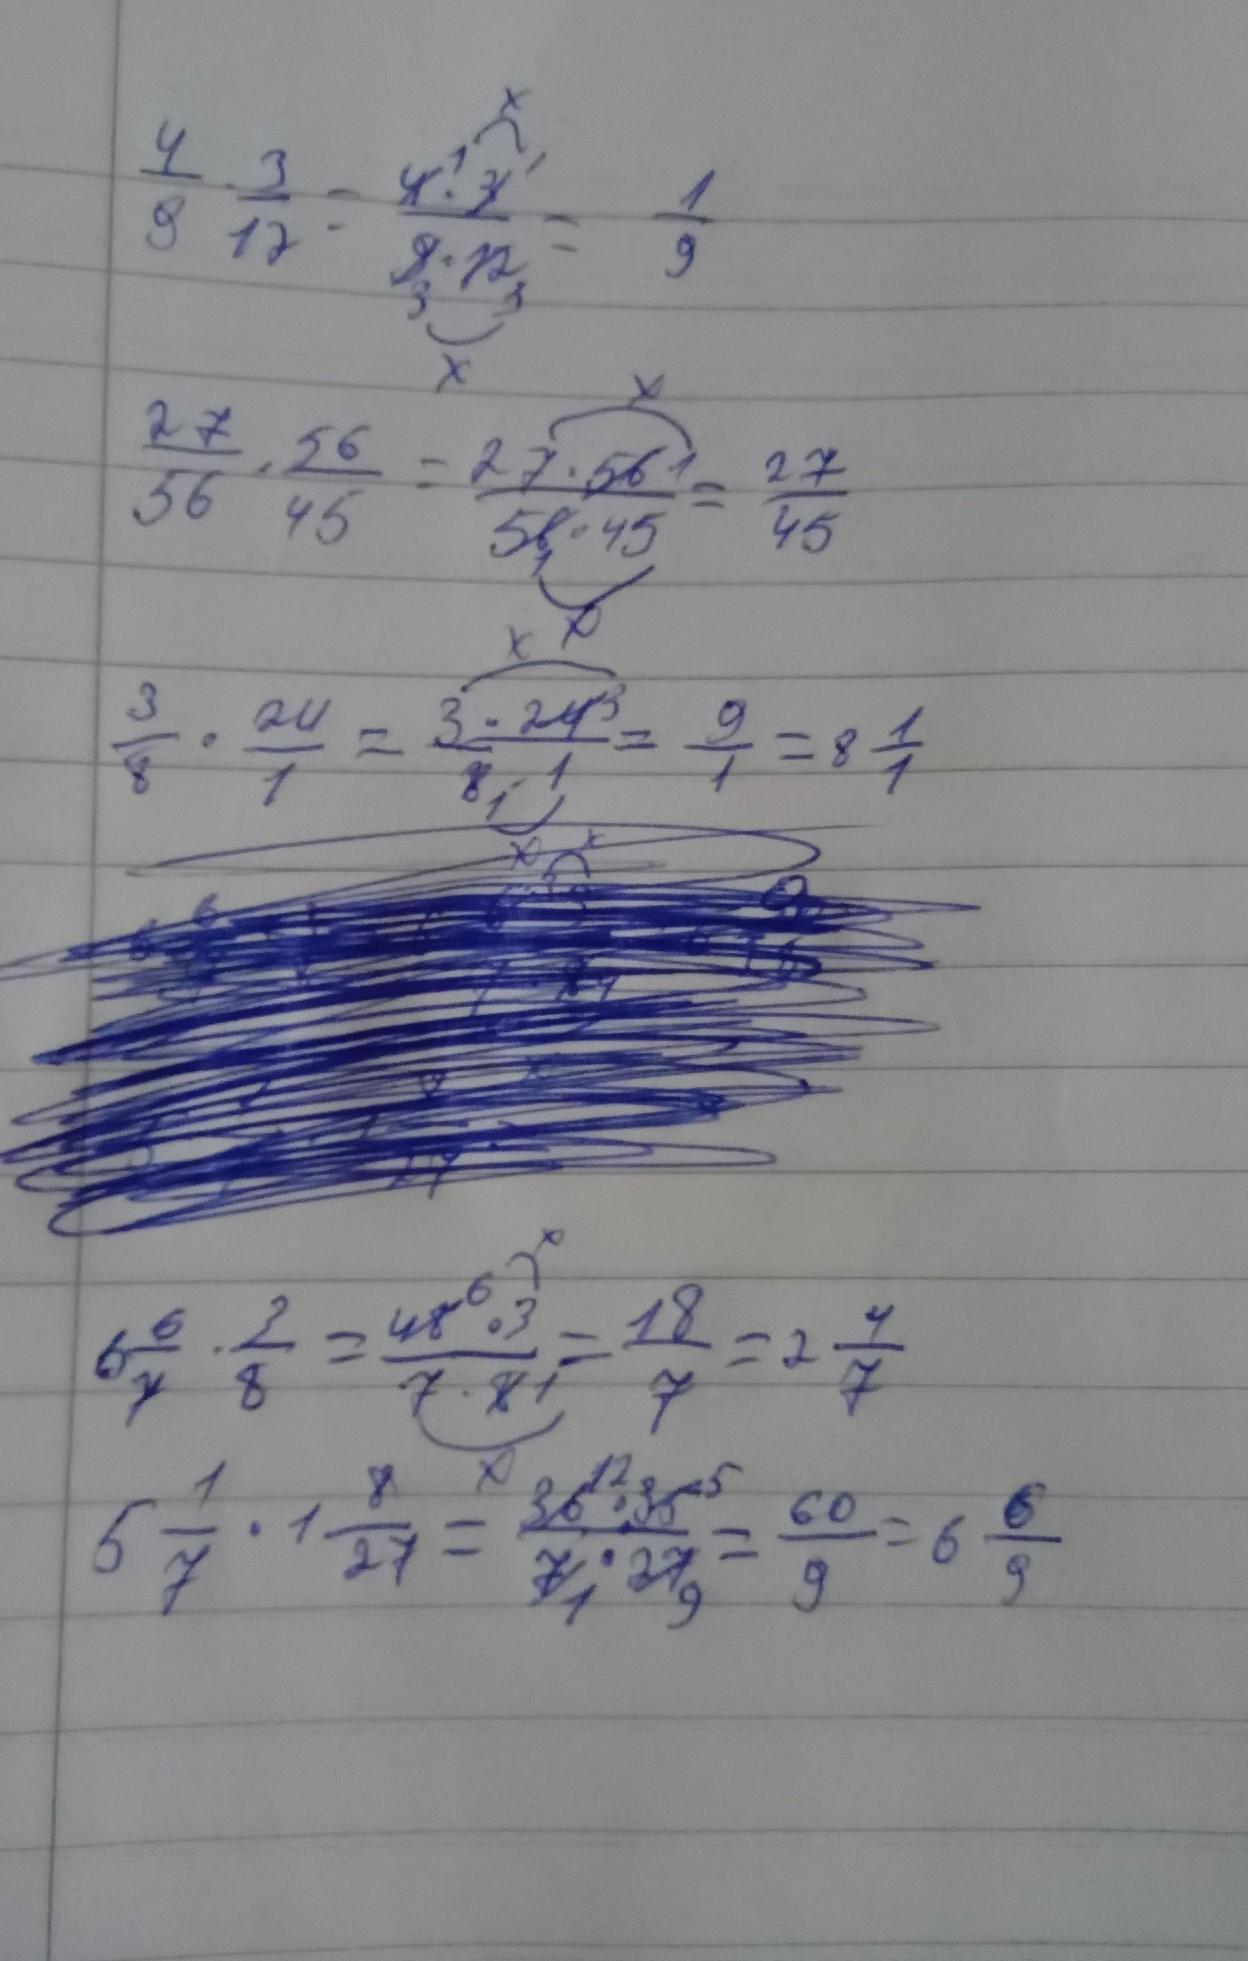 4/9 · 3/12 = 4¹·3¹/9₃·12₃ = 1/9
27/56 · 56/45 = 27·56¹/56₁·45 = 27/45
3/8 · 24/1 = 3·24³/8₁·1 = 9/1 = 8 1/1
6 6/7 · 3/8 = 48⁶·3/7·8₁ = 18/7 = 2 4/7
5 1/7 · 1 8/27 = 36¹²·35⁵/7₁·27₉ = 60/9 = 6 6/9